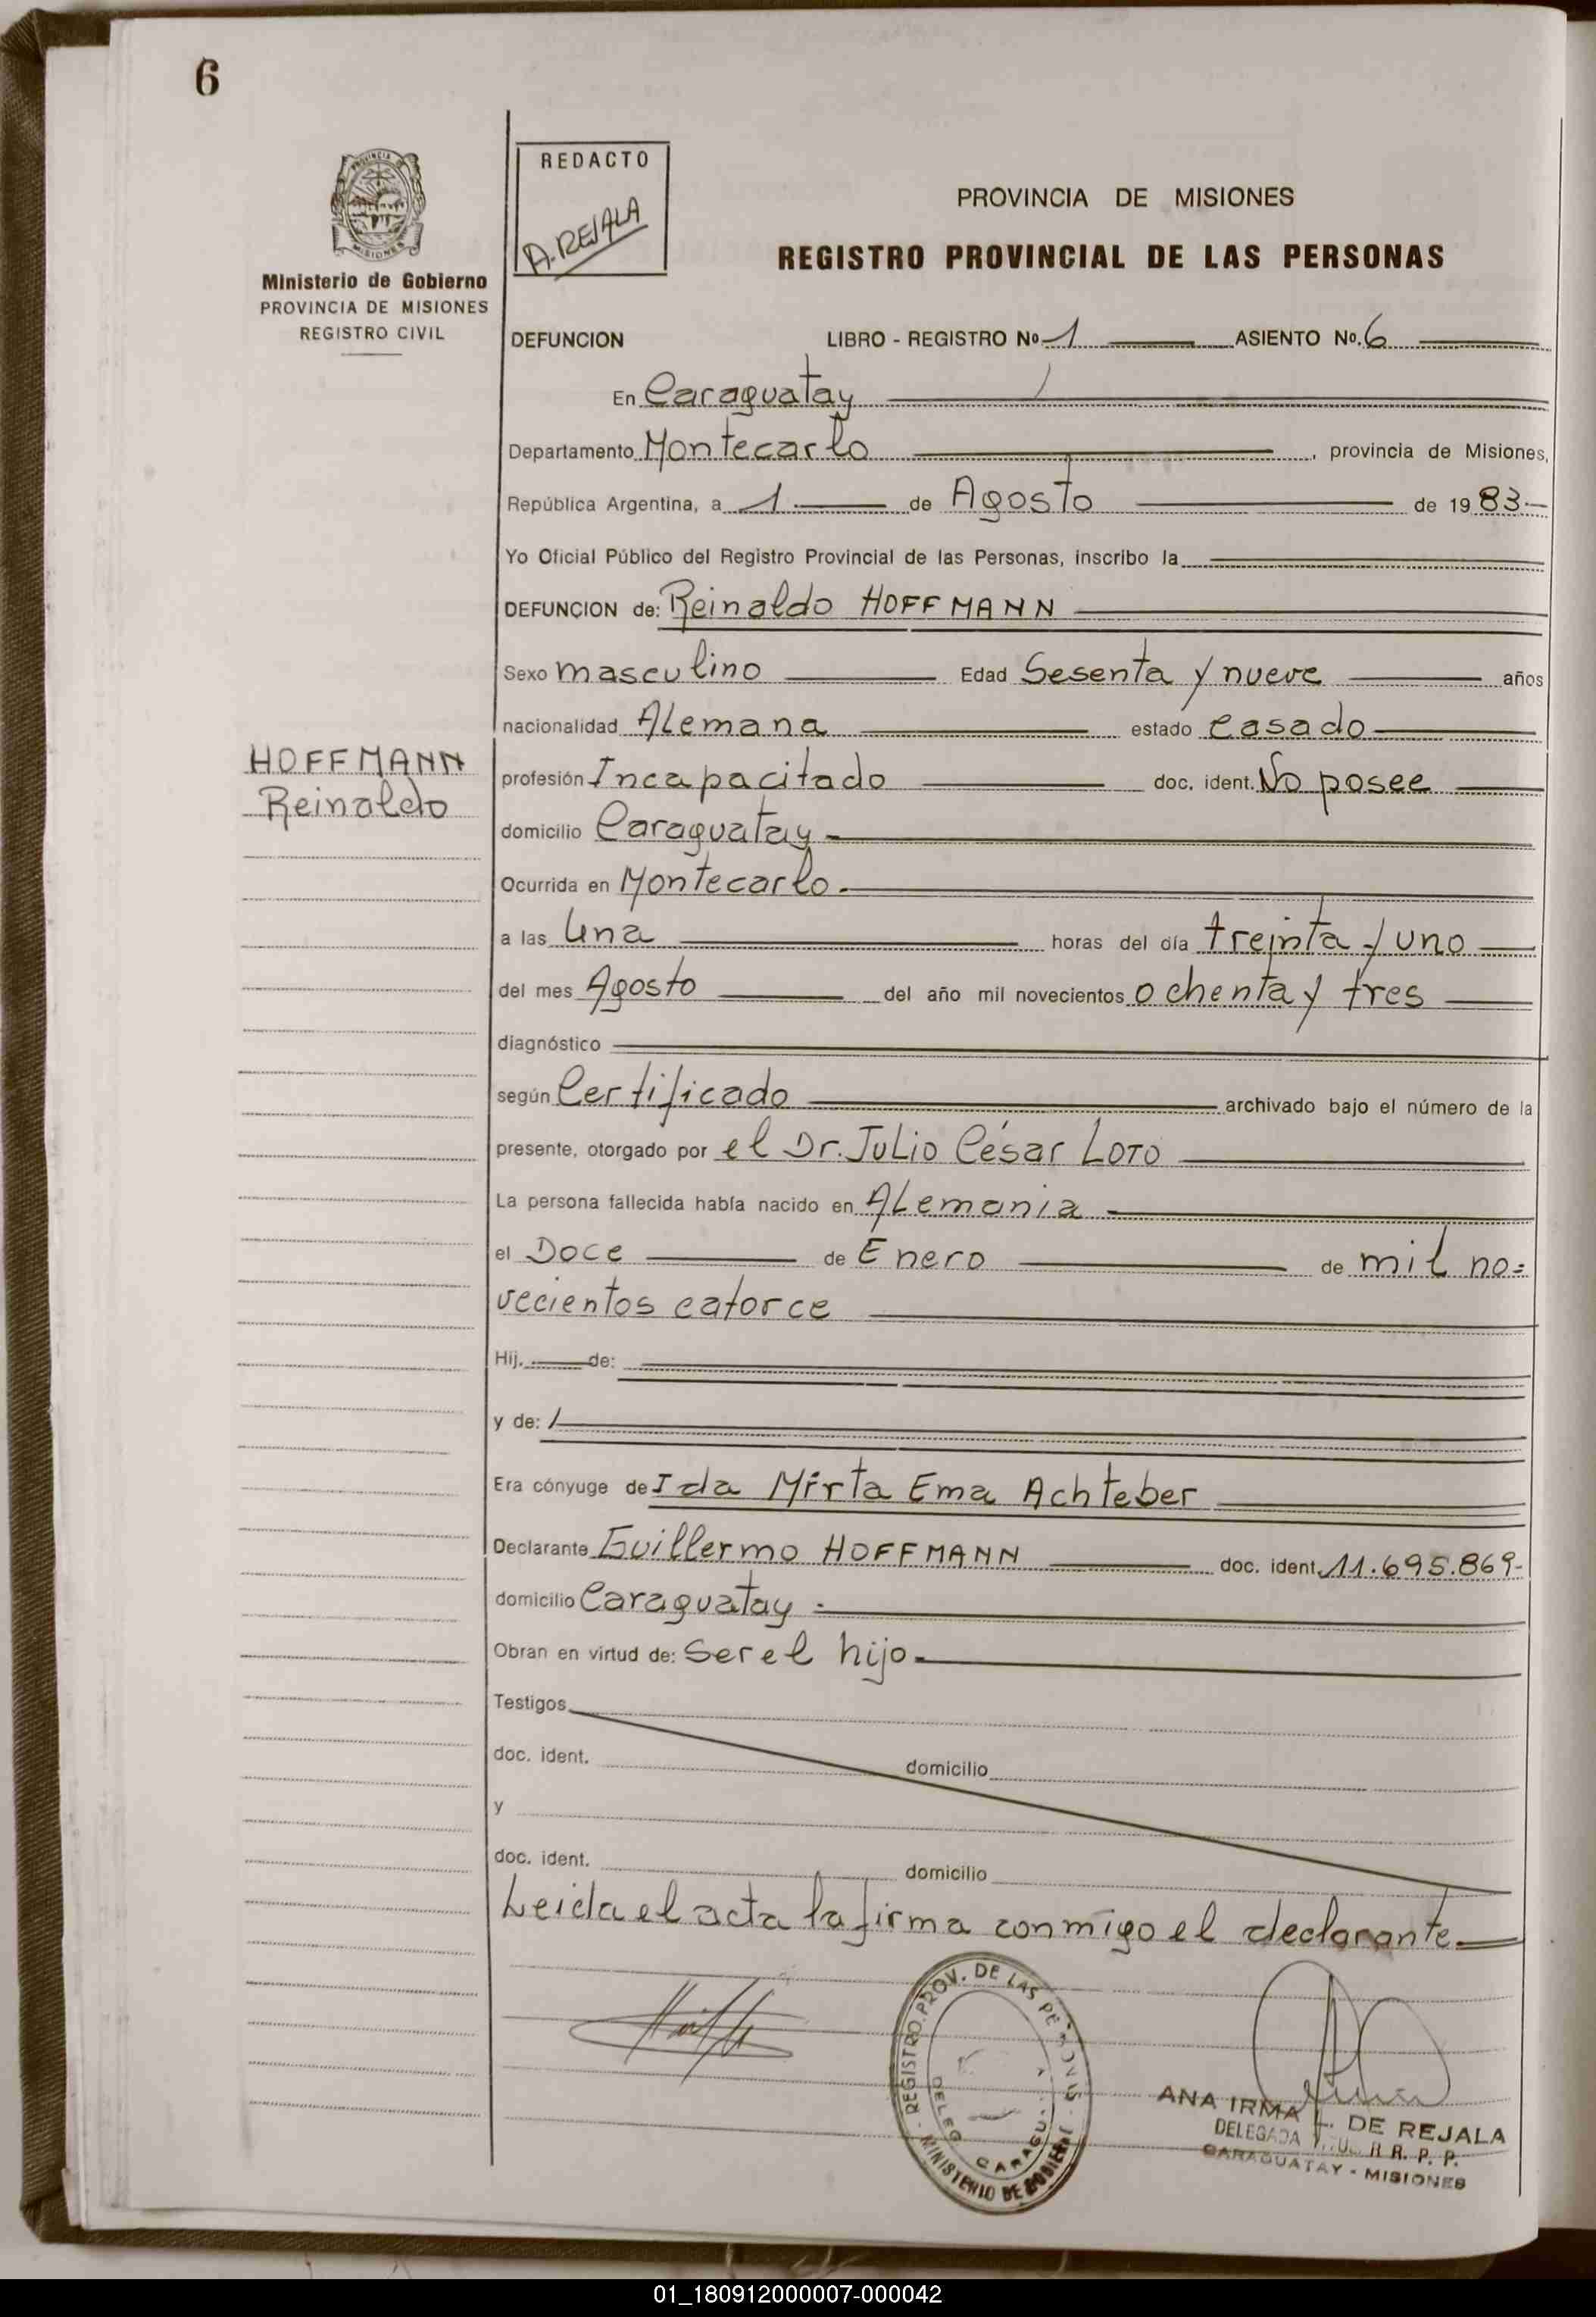 6
PROVINCIA DE
MISIONES
Ministerio de Gobierno
PROVINCIA DE MISIONES
REGISTRO CIVIL
REDACTO
A. REJALA
PROVINCIA DE MISIONES
REGISTRO PROVINCIAL DE LAS PERSONAS
DEFUNCION LIBRO - REGISTRO Nº 1 ASIENTO Nº. 6
En Caraguatay
Departamento Montecarlo, provincia de Misiones,
República Argentina, a 1 de Agosto de 1983
Yo Oficial Público del Registro Provincial de las Personas, inscribo la
DEFUNCION de: Reinaldo HOFFMANN
Sexo masculino Edad Sesenta y nueve años
nacionalidad Alemana estado Casado
HOFFMANN
Reinaldo
profesión Incapacitado doc. ident. No posee
domicilio Caraguatay
Ocurrida en Montecarlo
a las Una horas del día treinta y uno
del mes Agosto del año mil novecientos ochenta y tres
diagnóstico
según Certificado archivado bajo el número de la
presente, otorgado por el Dr. Julio César LOTO
La persona fallecida había nacido en Alemania
el Doce de Enero de mil no=
vecientos catorce
Hij. de:
y de:
Era cónyuge de Ida Mirta Ema Achteber
Declarante Guillermo HOFFMANN doc. ident. 11.695.869-
domicilio Caraguatay
Obran en virtud de: Ser el hijo
Testigos
doc. ident. domicilio
y
doc. ident. domicilio
Leida el acta la firma conmigo el declarante
REGISTRO PROV. DE LAS PERSONAS
DELEG. CARAGUATAY
MINISTERIO DE GOBIERNO
ANA IRMA L. DE REJALA
DELEGADA R. P. P.
CARAGUATAY - MISIONES
01_180912000007-000042